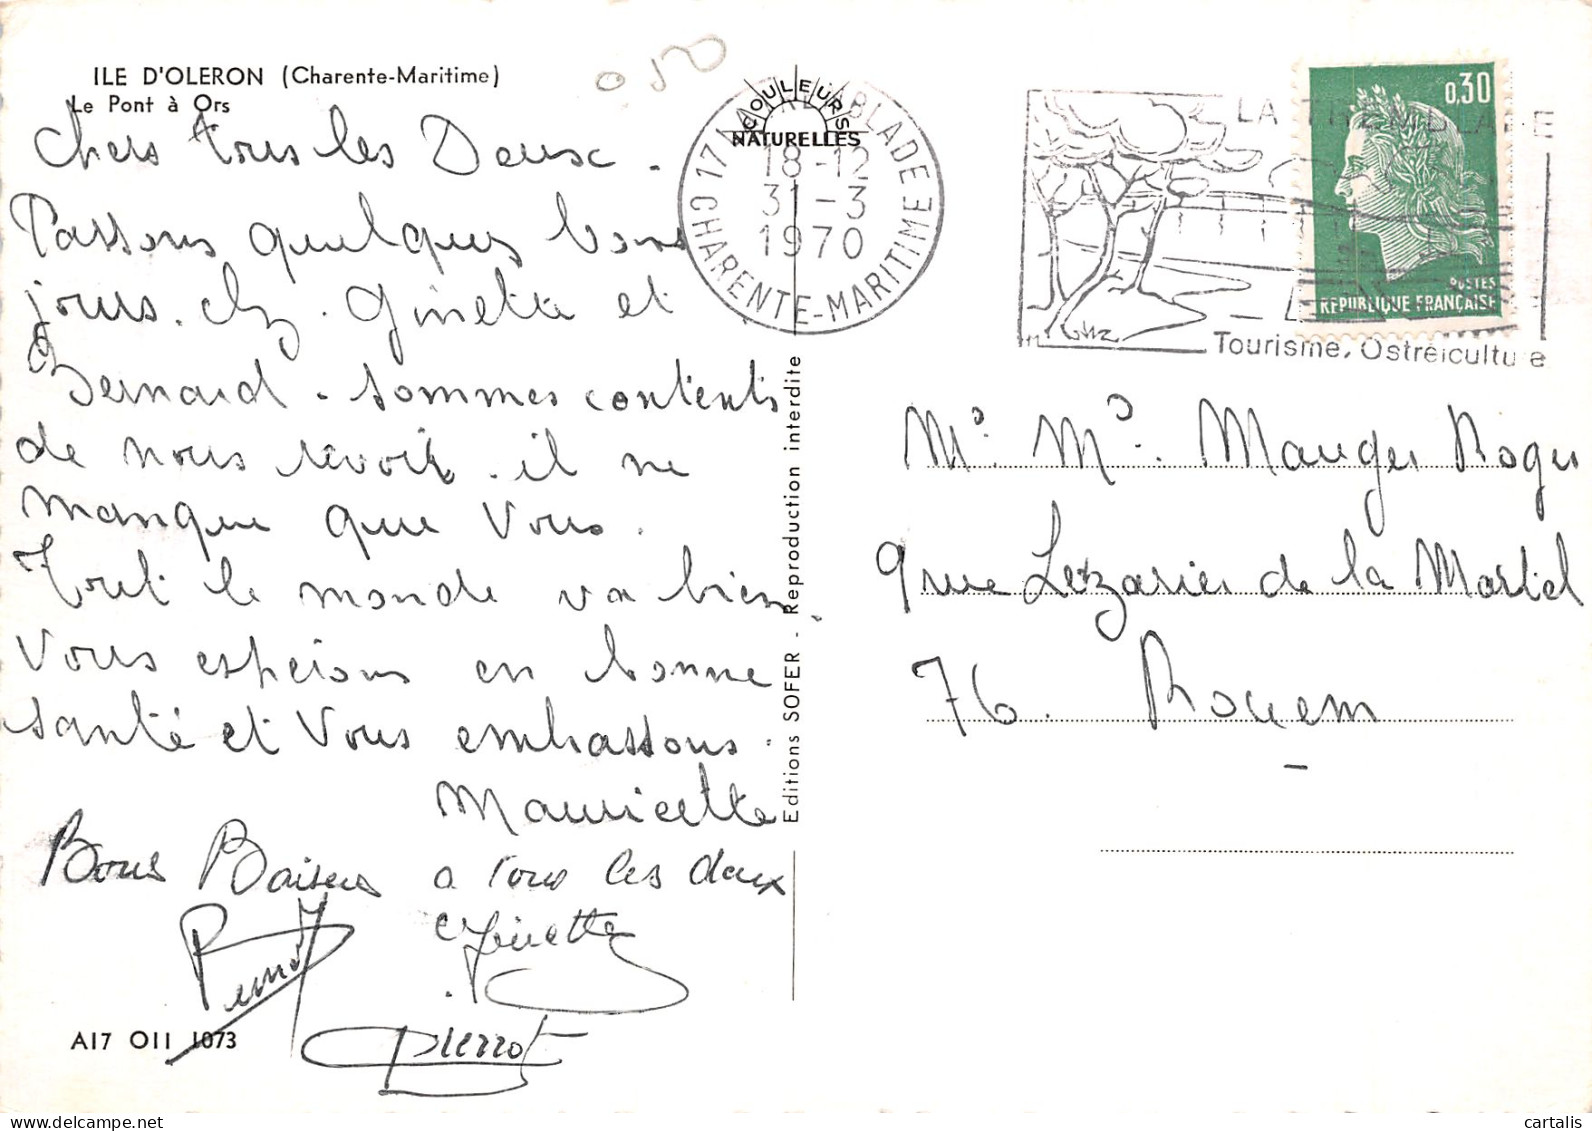 ILE D'OLERON (Charente-Maritime)
Le Pont à Ors
0,50
Chers tous les Deux.
Passons quelques bons
jours. chez. Ginette et
Bernard. sommes contents
de nous revoir. il ne
manque que Vous.
Tout le monde va bien
Vous espérons en bonne
santé et Vous embrassons.
Mauricette
Bons Baisers a tous les deux
Ginette
Bernard
Pierrot
A17 O11 1073
COULEURS
NATURELLES
17 LA TREMBLADE
18-12
31-3
1970
CHARENTE-MARITIME
Editions SOFER - Reproduction interdite
LA TREMBLADE
Tourisme, Ostréiculture
0,30
POSTES
REPUBLIQUE FRANÇAISE
Mr. Me. Mauger Roger
9 rue Lezarier de la Martel
76. Rouen
cartalis